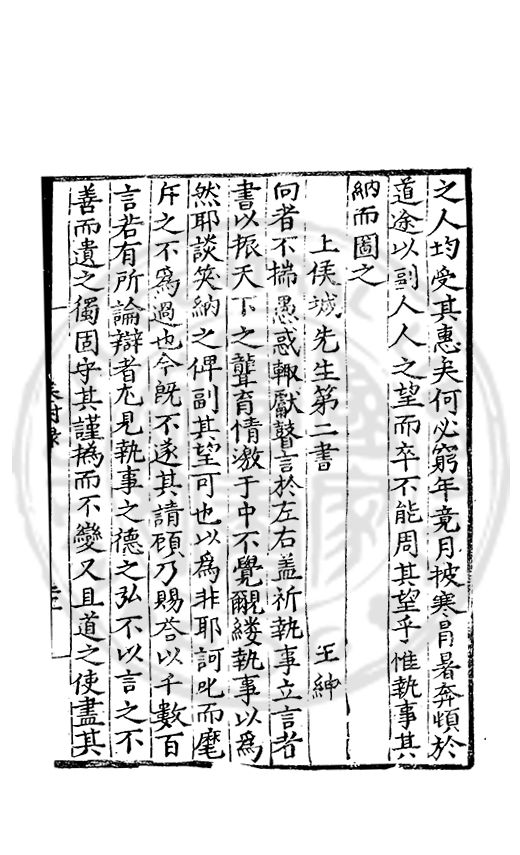 之人均受其惠矣何必窮年竟月披寒冐暑奔頓於
道途以副人人之望而卒不能周其望乎惟執事其
納而圖之
上侯城先生第二書　王紳
向者不揣愚惑輙獻瞽言於左右盖祈執事立言者
書以振天下之聾盲情激于中不覺覼縷執事以為
然耶談笑納之俾副其望可也以為非耶訶叱而麾
斥之不為過也今旣不遂其請頋乃賜荅以千數百
言若有所論辯者尤見執事之德之弘不以言之不
善而遺之獨固守其謹撝而不變又且道之使盡其